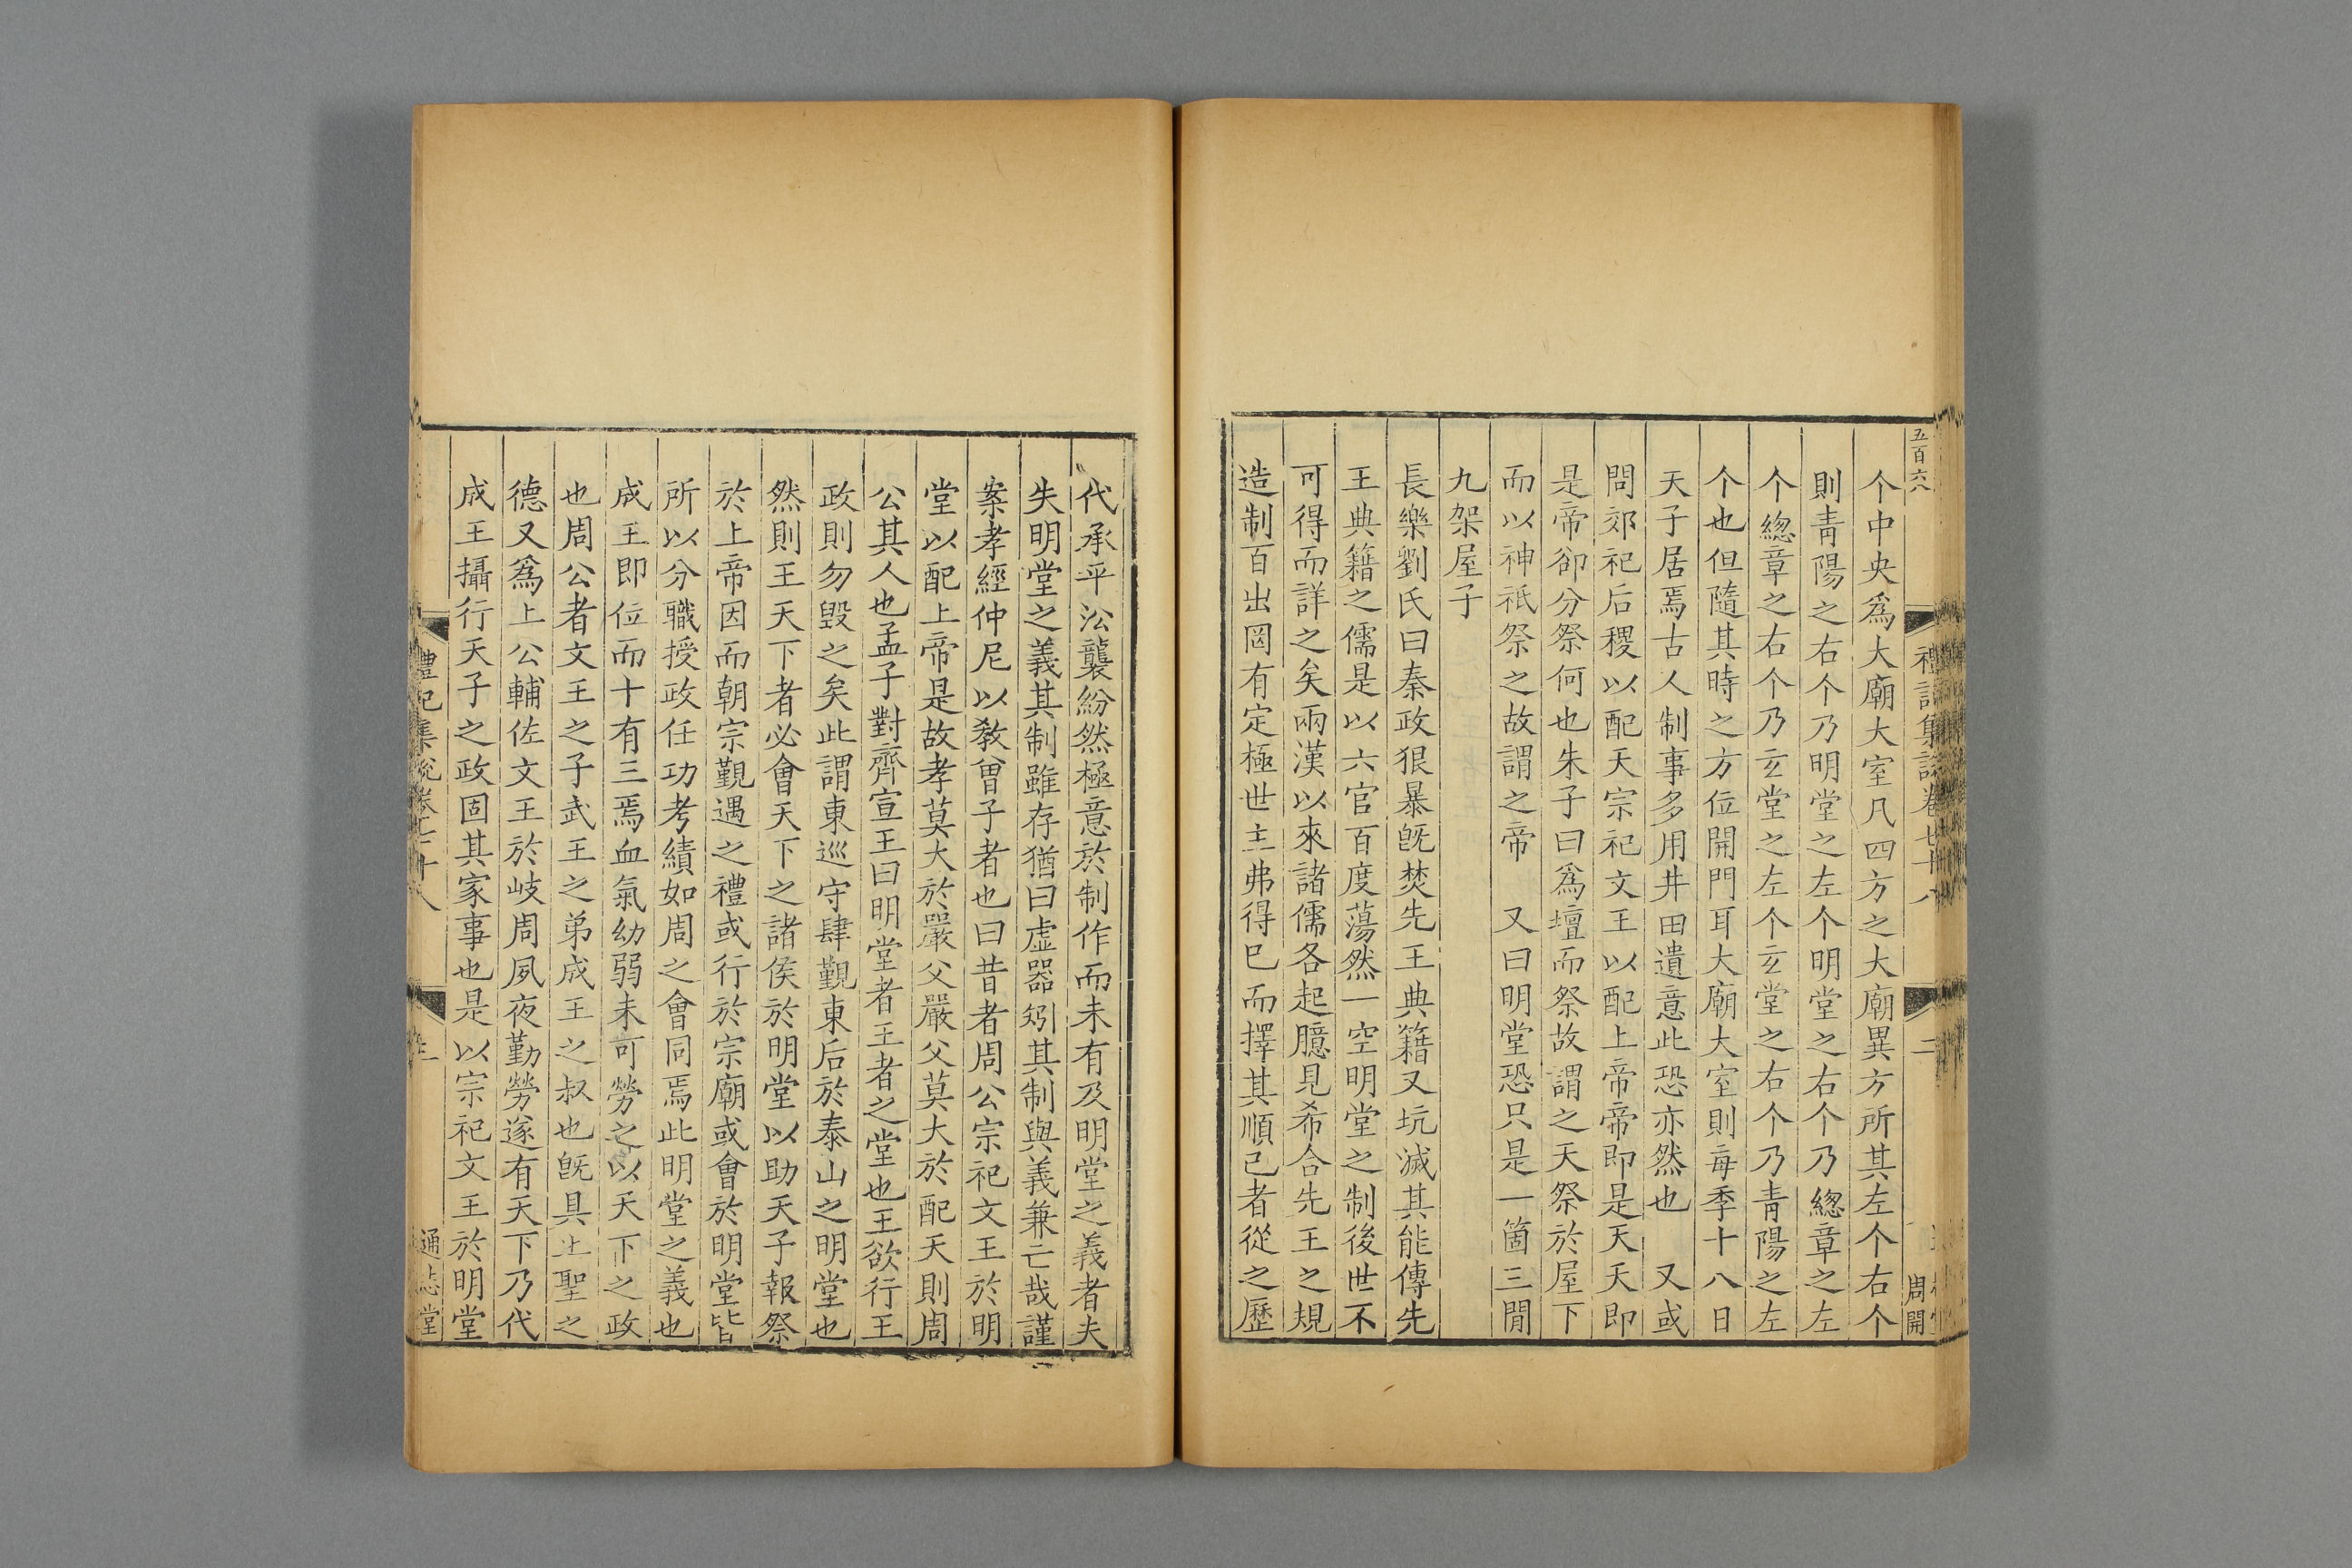 五百六八
个中央爲大廟大室凡四方之大廟異方所其左个右个
則青陽之右个乃明堂之左个明堂之右个乃緫章之左
个緫章之右个乃玄堂之左个玄堂之右个乃青陽之左
个也但隨其時之方位開門耳大廟大室則每季十八日
天子居焉古人制事多用井田遺意此恐亦然也　又或
問郊祀后稷以配天宗祀文王以配上帝帝即是天天即
是帝卻分祭何也朱子曰爲壇而祭故謂之天祭於屋下
而以神祇祭之故謂之帝　又曰明堂恐只是一箇三閒
九架屋子
長樂劉氏曰秦政狠暴旣焚先王典籍又坑滅其能傳先
王典籍之儒是以六官百度蕩然一空明堂之制後世不
可得而詳之矣兩漢以來諸儒各起臆見希合先王之規
造制百出罔有定極世主弗得已而擇其順己者從之歷
禮記集說卷七十八
二
周開
代承平㳂襲紛然極意於制作而未有及明堂之義者夫
失明堂之義其制雖存猶曰虛器矧其制與義兼亡哉謹
案孝經仲尼以敎曾子者也曰昔者周公宗祀文王於明
堂以配上帝是故孝莫大於嚴父嚴父莫大於配天則周
公其人也孟子對齊宣王曰明堂者王者之堂也王欲行王
政則勿毀之矣此謂東巡守肆覲東后於泰山之明堂也
然則王天下者必會天下之諸侯於明堂以助天子報祭
於上帝因而朝宗覲遇之禮或行於宗廟或會於明堂皆
所以分職授政任功考績如周之會同焉此明堂之義也
成王即位而十有三焉血氣幼弱未可勞之以天下之政
也周公者文王之子武王之弟成王之叔也旣具上聖之
德又爲上公輔佐文王於岐周夙夜勤勞遂有天下乃代
成王攝行天子之政固其家事也是以宗祀文王於明堂
禮記集說卷七十八
通志堂